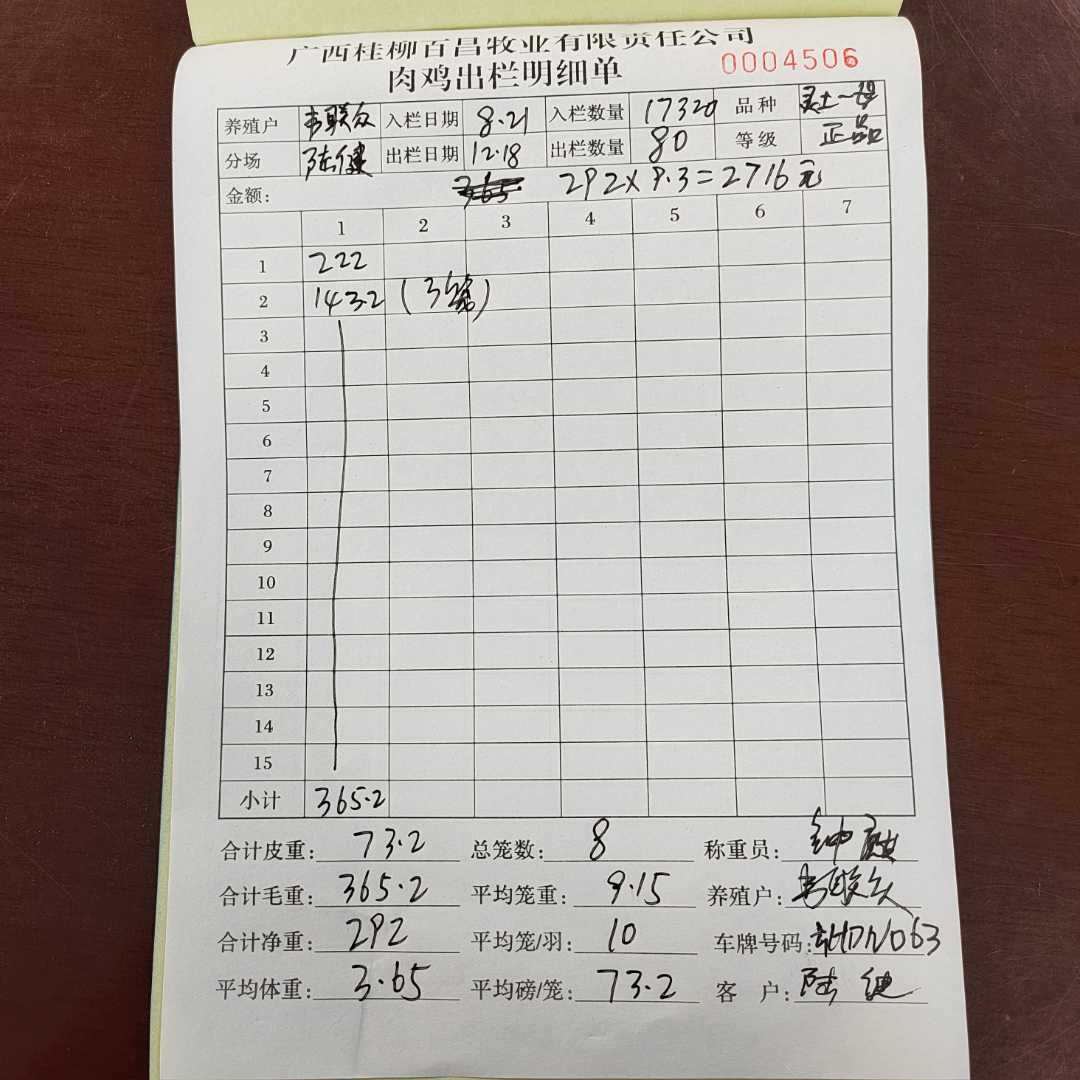 广西桂柳百昌牧业有限责任公司
肉鸡出栏明细单 0004506
养殖户 韦联众 入栏日期 8.21 入栏数量 17320 品种 灵土一号
分场 陆健 出栏日期 12.18 出栏数量 80 等级 正品
金额: 365 292×9.3=2716元
1 2 3 4 5 6 7
1 222
2 143.2 (3笼)
3
4
5
6
7
8
9
10
11
12
13
14
15
小计 365.2
合计皮重: 73.2 总笼数: 8 称重员: 钟
合计毛重: 365.2 平均笼重: 9.15 养殖户: 韦联众
合计净重: 292 平均笼/羽: 10 车牌号码: HDN063
平均体重: 3.65 平均磅/笼: 73.2 客户: 陆健